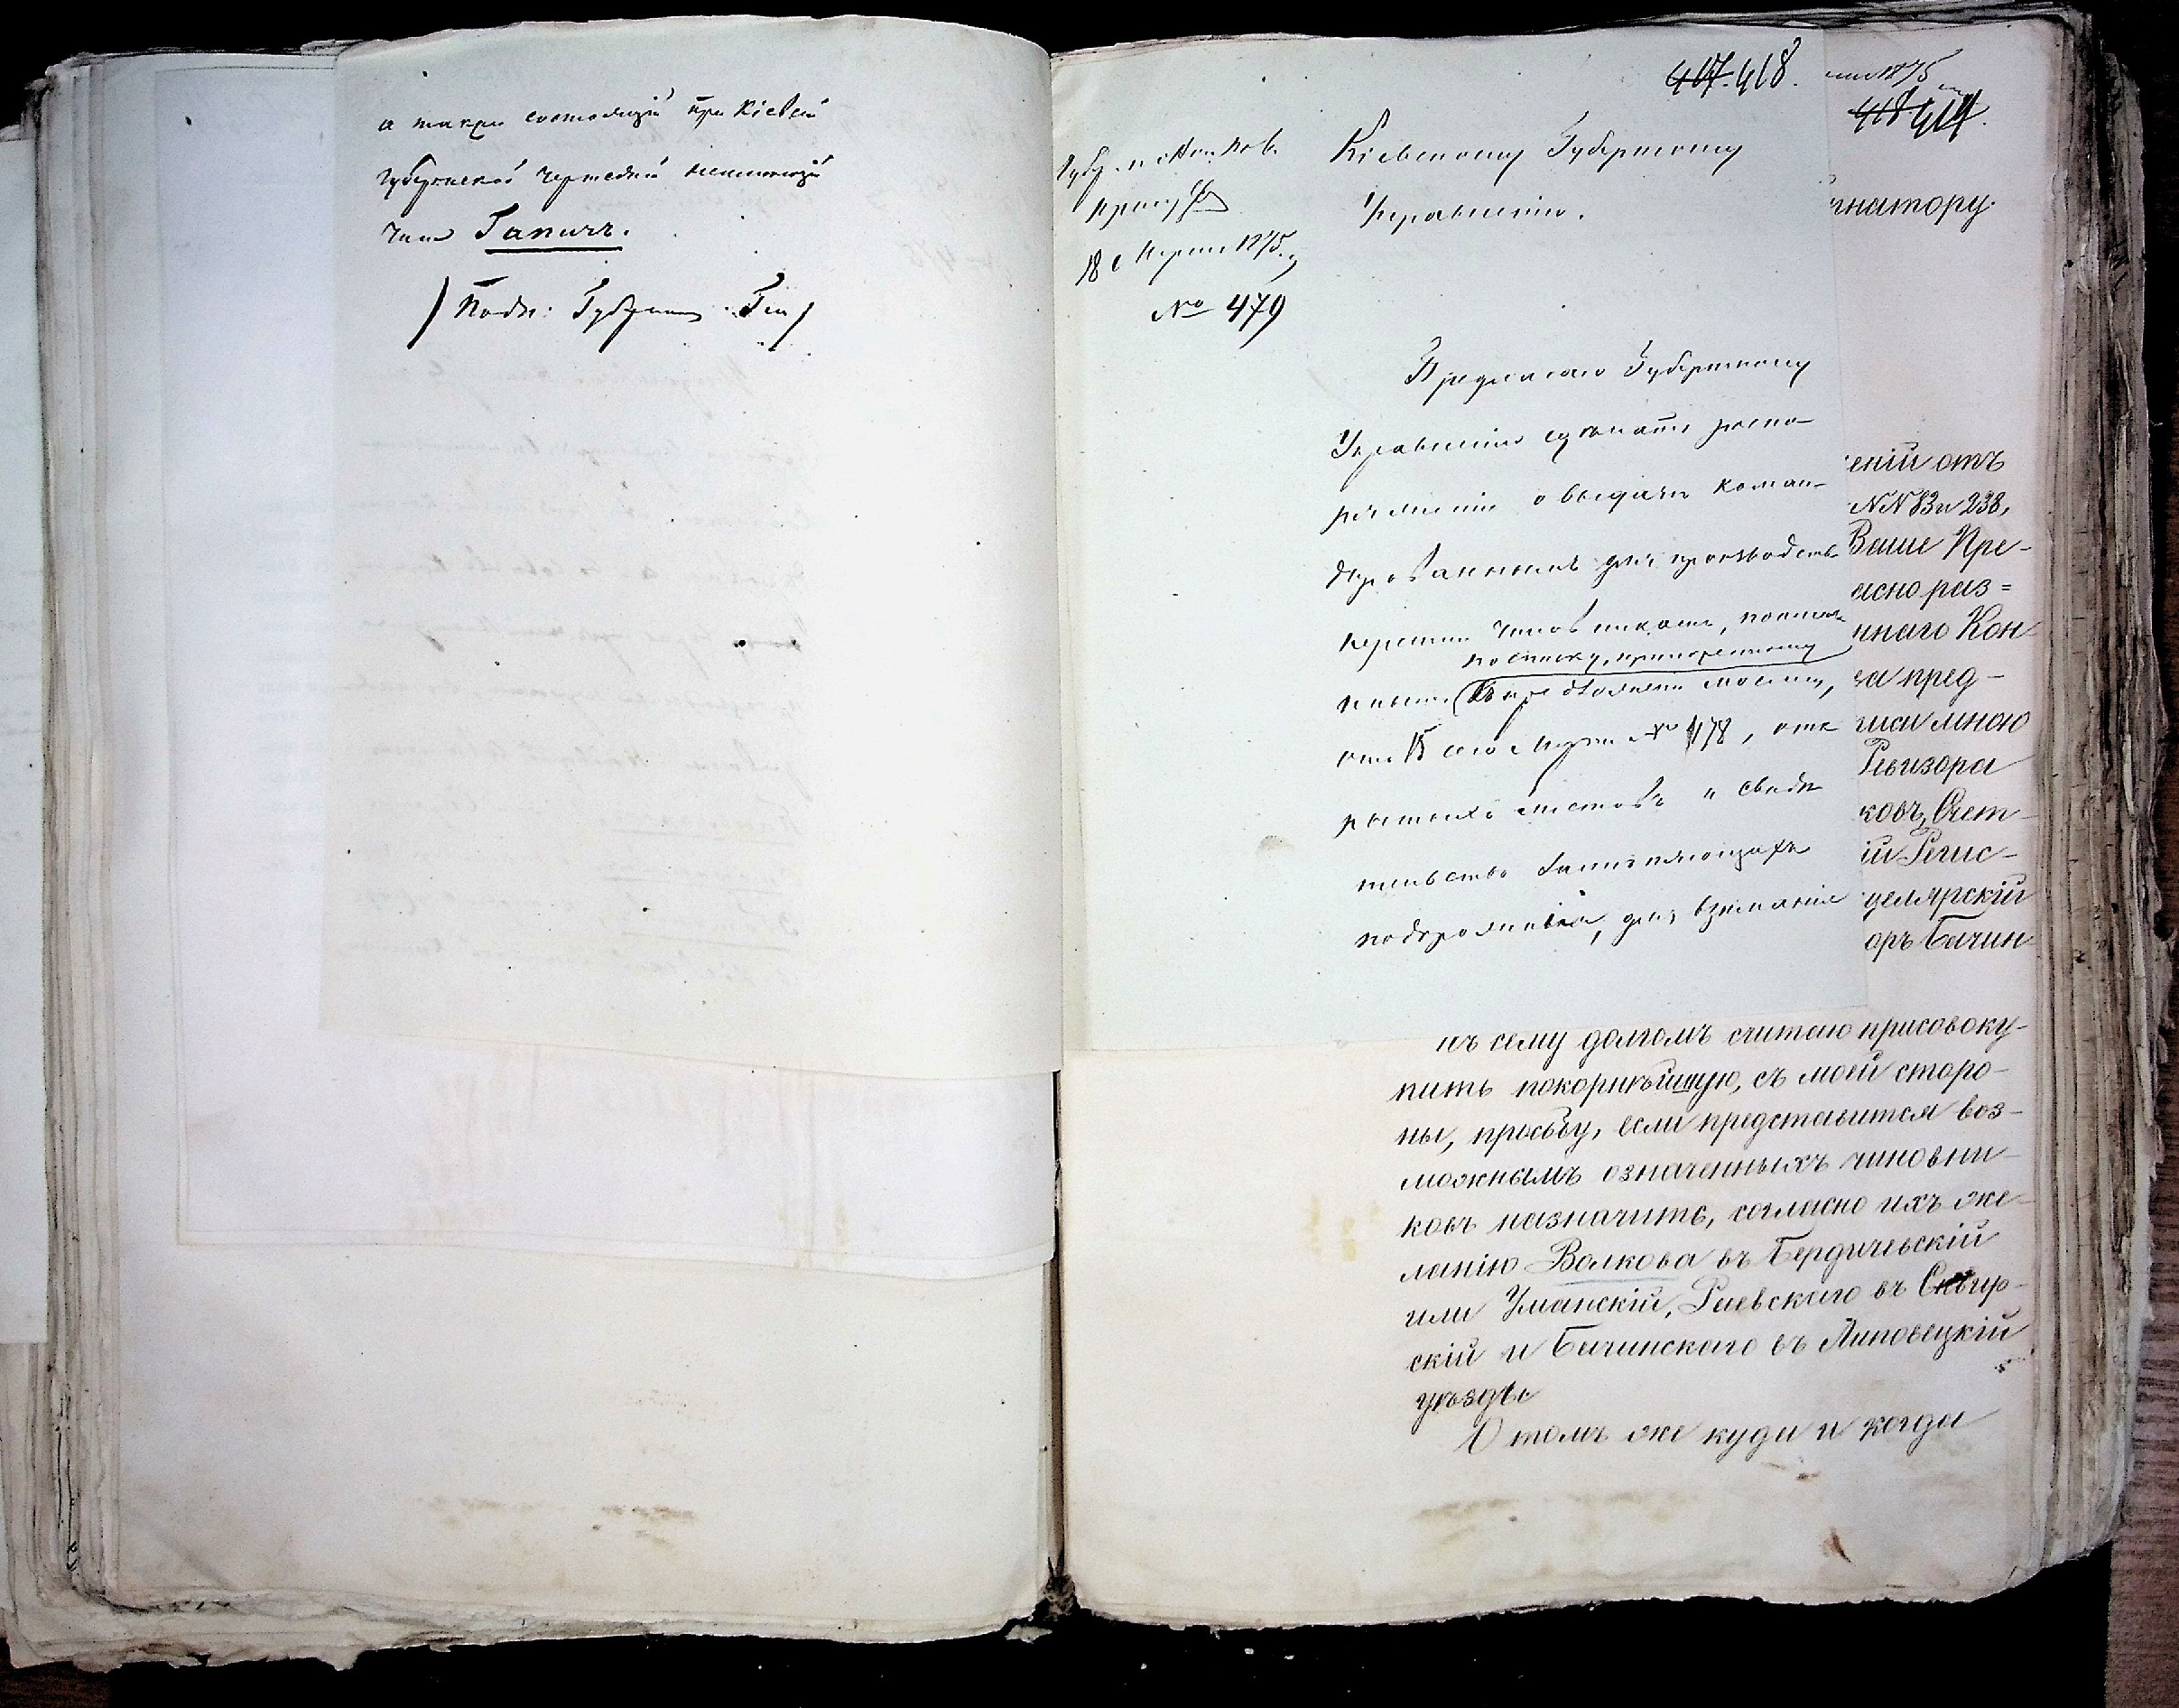 а также состоящій при Кіевской
Губернской Чертежной неимеющій
чина Гапичъ.
(Подп: Губернат: Гес)
407. 418.
Губ. по
18 Марта 1875 г.
№ 479
Кіевскому Губернскому
Правленію.
Предлагаю Губернскому
Правленію сдѣлать распо-
ряженіе о выдачѣ коман-
дированнымъ для производства
чиновникамъ,
по списку, приложенному
къ предложенію моему,
отъ 15 сего Марта № 478, отк
рытыхъ листовъ и свидѣ
тельствъ замѣняющихъ
подорожныя, для взиманія
1875
418 419.
рнатору.
еній отъ
NN 83 и 238,
Ваше Пре-
асно раз=
ннаго Кон
за пред-
мною
Ревизора
ковъ, Счет-
ій Регис-
целярскій
оръ Бачин
къ сему долгомъ считаю присовоку-
пить покорнѣйшую, съ моей сторо-
ны, просьбу, если представится воз-
можнымъ означенныхъ чиновни-
ковъ назначить, согласно ихъ же-
ланію Волкова въ Бердичевскій
или Уманскій, Раевскаго въ Сквир-
скій и Бачинскаго въ Липовецкій
уѣзды
О томъ же куда и когда